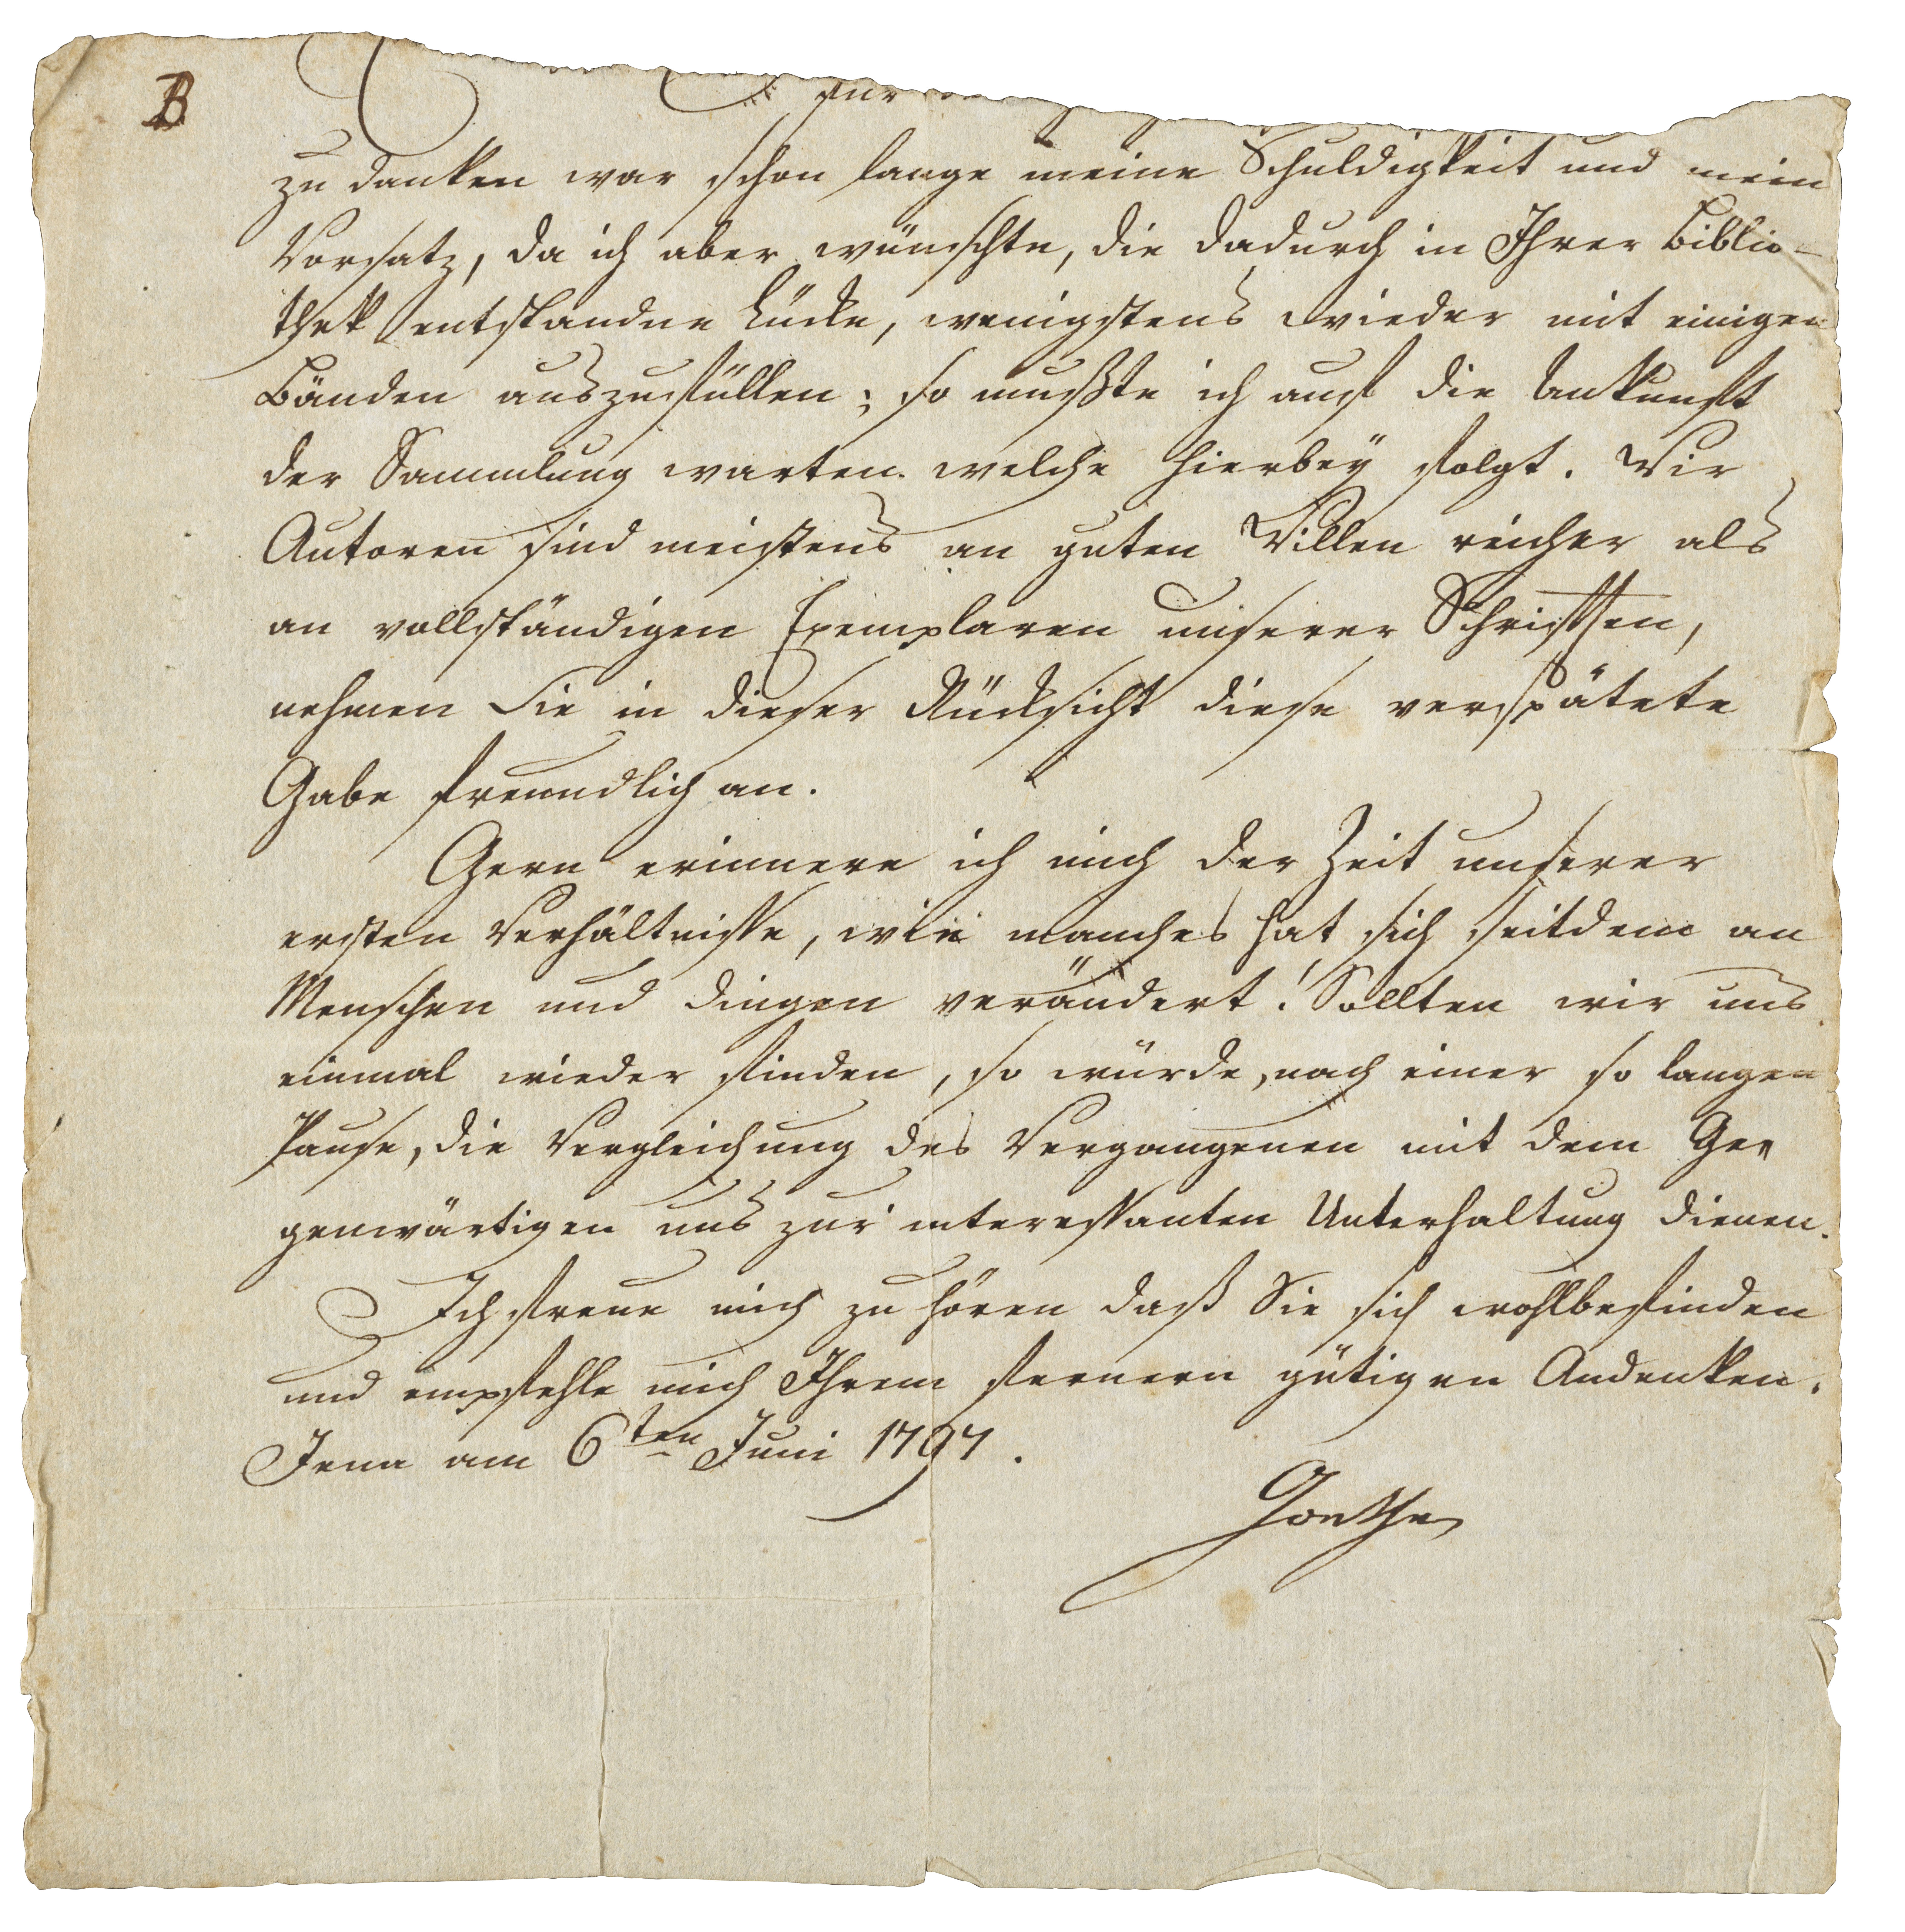 B
für
zu danken war schon lange meine Schuldigkeit und mein
Vorsatz, da ich aber wünschte, die dadurch in Ihrer Biblio-
thek entstandne Lücke, wenigstens wieder mit einigen
Bänden auszufüllen; so mußte ich auf die Ankunft
der Sammlung warten welche hierbey folgt. Wir
Autoren sind meistens an guten Willen reicher als
an vollständigen Exemplaren unserer Schriften,
nehmen Sie in dieser Rücksicht diese verspätete
Gabe freundlich an.
Gern erinnere ich mich der Zeit unserer
ersten Verhältnisse, wie manches hat sich seitdem an
Menschen und Dingen verändert! Sollten wir uns
einmal wieder finden, so würde, nach einer so langen
Pause, die Vergleichung des Vergangenen mit dem Ge-
genwärtigen uns zur interessanten Unterhaltung dienen.
Ich freue mich zu hören daß Sie sich wohlbefinden
und empfehle mich Ihrem fernern gütigen Andenken.
Jena am 6ten Juni 1797.
Goethe